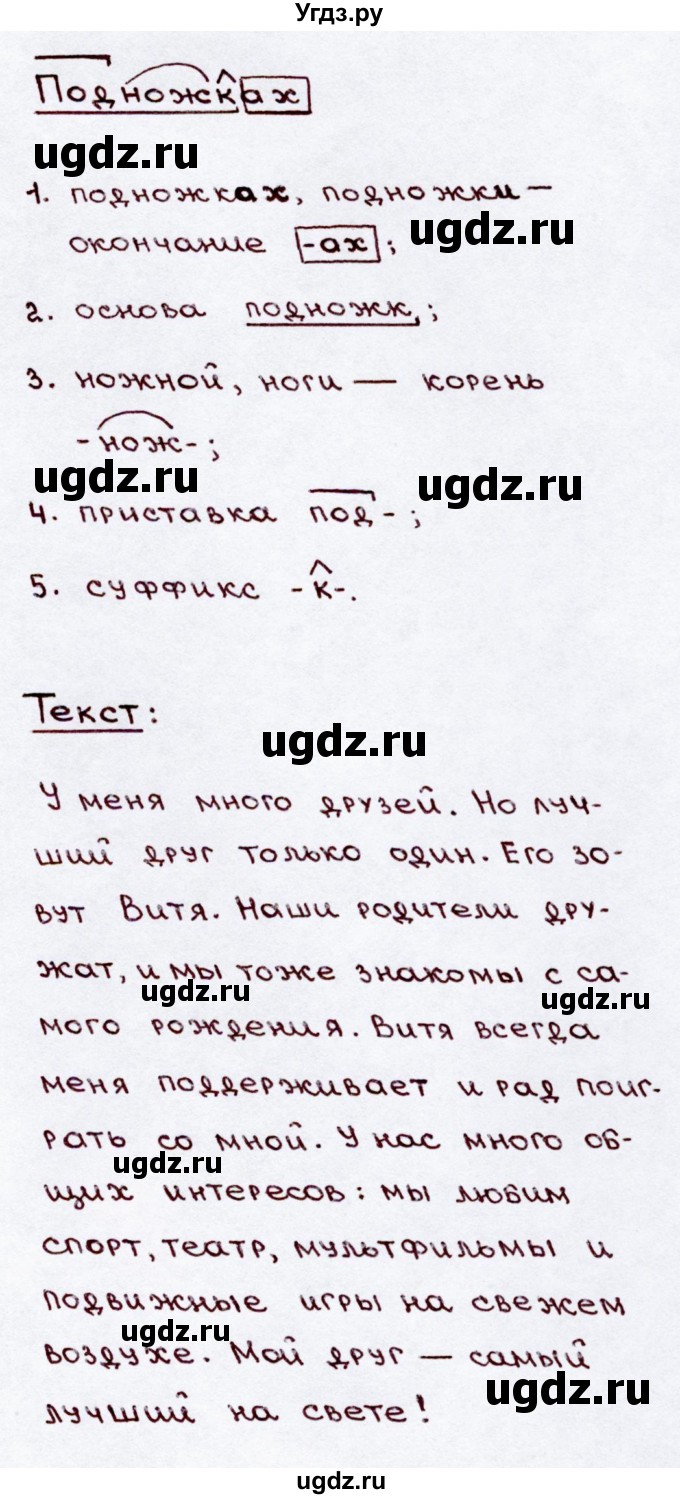 Угдз.ру
Подножках
ugdz.ru
1. подножках, подножки —
ugdz.ru
окончание -ах ;
2. основа подножк ;
3. ножной, ноги — корень
-нож- ;
ugdz.ru
ugdz.ru
4. приставка под- ;
5. суффикс -к-.
Текст:
ugdz.ru
У меня много друзей. Но луч-
ший друг только один. Его зо-
вут Витя. Наши родители дру-
жат, и мы тоже знакомы с са-
ugdz.ru
ugdz.ru
мого рождения. Витя всегда
меня поддерживает и рад поиг-
рать со мной. У нас много об-
ugdz.ru
щих интересов: мы любим
спорт, театр, мультфильмы и
подвижные игры на свежем
ugdz.ru
воздухе. Мой друг — самый
ugdz.ru
лучший на свете!
ugdz.ru